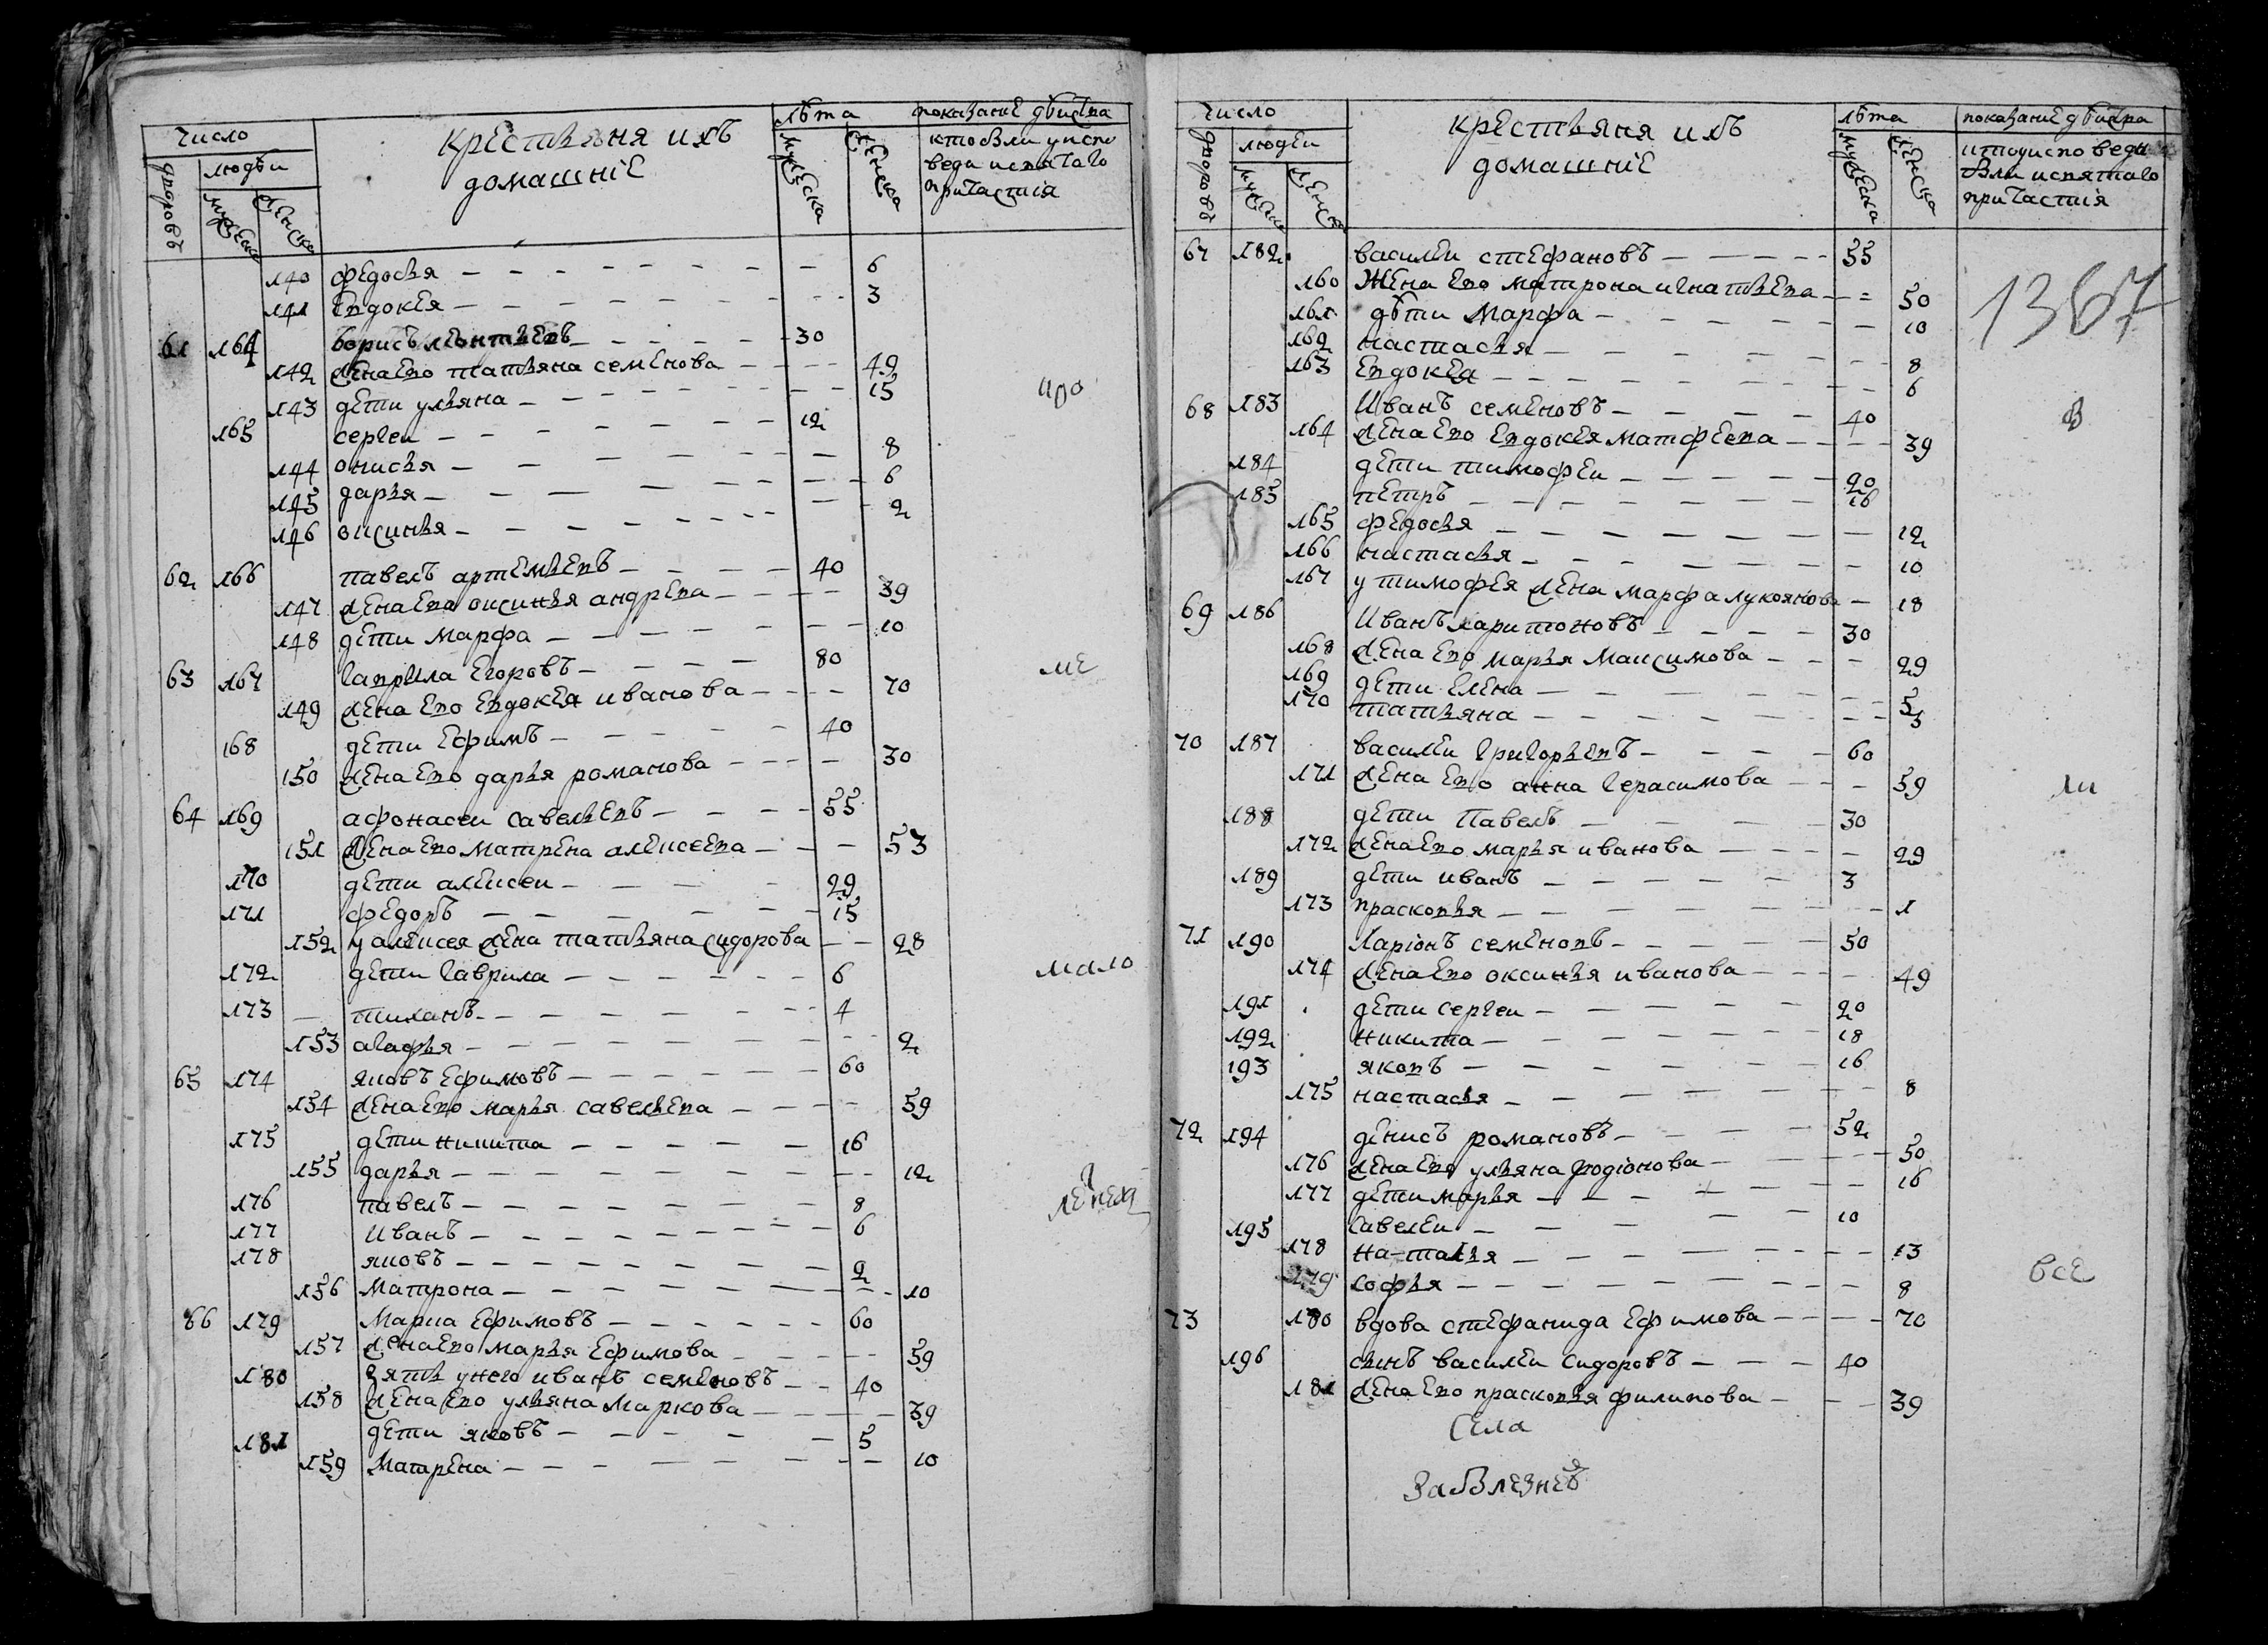 число
людьи
дворовъ
мужеска
женска
крестьяня ихъ
домашніе
лѣта
мужеска
женска
показаніе дѣйства
кто были у испо
веди и святаго
причастия
140 федосья — 6
141 евдокея — 3
61 164 борисъ леонтьевъ — 30
142 жена ево татьяна семенова — 42
143 дети ульяна — 15
165 сергеи — 12
144 онисья — 8
145 дарья — 6
146 оксинья — 2
62 166 павелъ артемьевъ — 40
147 жена ево оксинья андрева — 39
148 дети марфа — 10
63 167 гаврила егоровъ — 80
149 жена ево евдокея иванова — 70
168 дети ефимъ — 40
150 жена ево дарья романова — 30
64 169 афонасеи савельевъ — 55
151 жена ево матрена алексеева — 53
170 дети алексеи — 29
171 федоръ — 15
152 у алексея жена татьяна сидорова — 28
172 дети гаврила — 6
173 тиханъ — 4
153 агафья — 2
65 174 яковъ ефимовъ — 60
154 жена ево марья савельева — 59
175 дети никита — 16
155 дарья — 12
176 павелъ — 8
177 иванъ — 6
178 яковъ — 2
156 матрона — 10
66 179 марка ефимовъ — 60
157 жена ево марья ефимова — 59
180 зять у него иванъ семеновъ — 40
158 жена ево ульяна маркова — 39
181 дети яковъ — 5
159 матрена — 10
ме
мало
число
людеи
дворовъ
мужеска
женска
крестьяня ихъ
домашніе
лѣта
мужеска
женска
показаніе дѣиства
кто у исповеди
были и святаго
причастия
1367
67 182 василеи стефановъ — 55
160 жена ево матрона игнатьева — 50
161 дѣти марфа — 10
162 настасья — 8
163 евдокея — 6
68 183 иванъ семеновъ — 40
164 жена ево евдокея матфеева — 39
184 дети тимофеи — 20
185 петръ — 16
165 федосья — 12
166 настасья — 10
167 у тимофея жена марфа лукоянова — 18
69 186 иванъ харитоновъ — 30
168 жена ево марья максимова — 29
169 дети елена — 5
170 татьяна — 3
70 187 василеи григорьевъ — 60
171 жена ево анна герасимова — 59
188 дети павелъ — 30
172 жена ево марья иванова — 29
189 дети иванъ — 3
173 прасковья — 1
71 190 ларіонъ семеновъ — 50
174 жена ево оксинья иванова — 49
191 дети сергеи — 20
192 никита — 18
193 яковъ — 16
175 настасья — 8
72 194 денисъ романовъ — 52
176 жена ево ульяна родіонова — 50
177 дети марья — 16
195 савелеи — 10
178 наталья — 13
179 софья — 8
73 180 вдова стефанида ефимова — 70
196 сынъ василеи сидоровъ — 40
181 жена ево прасковья филипова — 39
ли
все
села